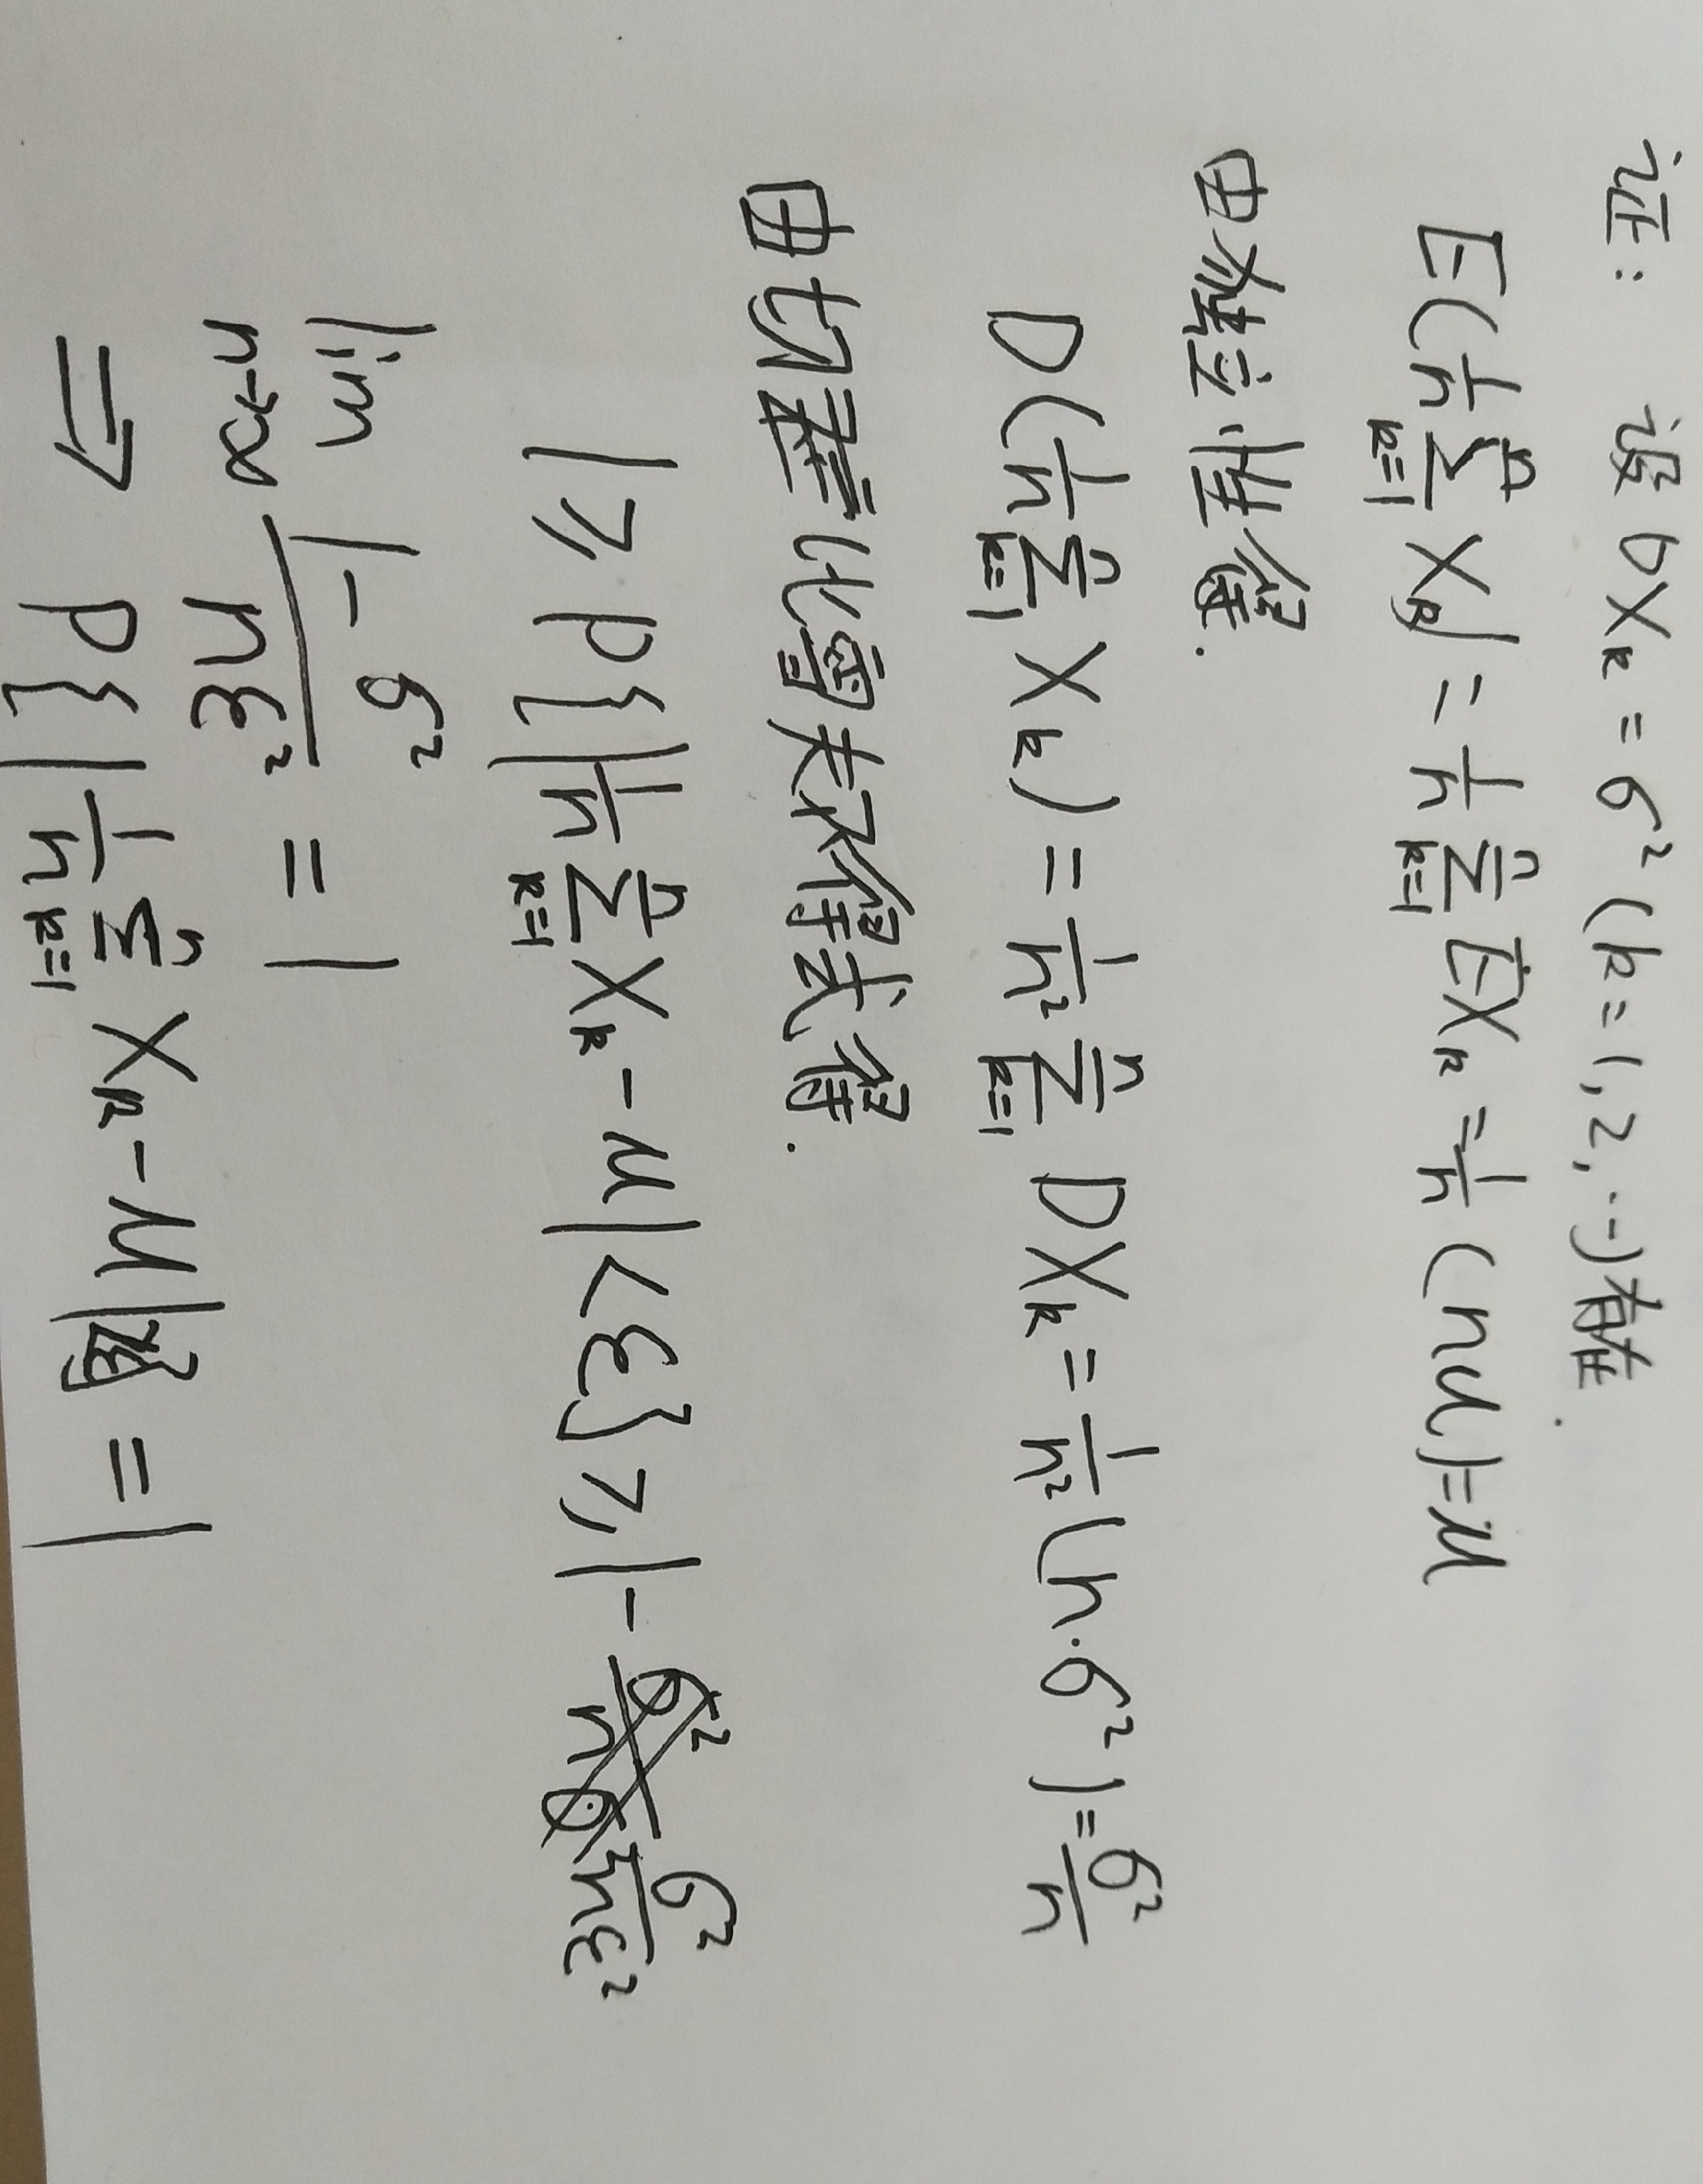 证: 设 DXₖ = σ² (k=1,2,…)存在.
E(1/n ∑ₖ₌₁ⁿ Xₖ) = 1/n ∑ₖ₌₁ⁿ EXₖ = 1/n (nμ)=μ
由独立性得.
D(1/n ∑ₖ₌₁ⁿ Xₖ) = 1/n² ∑ₖ₌₁ⁿ DXₖ = 1/n² (n·σ²) = σ²/n
由切比雪夫不得式得.
1 ≥ P{|1/n ∑ₖ₌₁ⁿ Xₖ - μ| < ε} ≥ 1 - σ²/nε²
lim n→∞ 1 - σ²/nε² = 1
⇒ P{|1/n ∑ₖ₌₁ⁿ Xₖ - μ| = 1